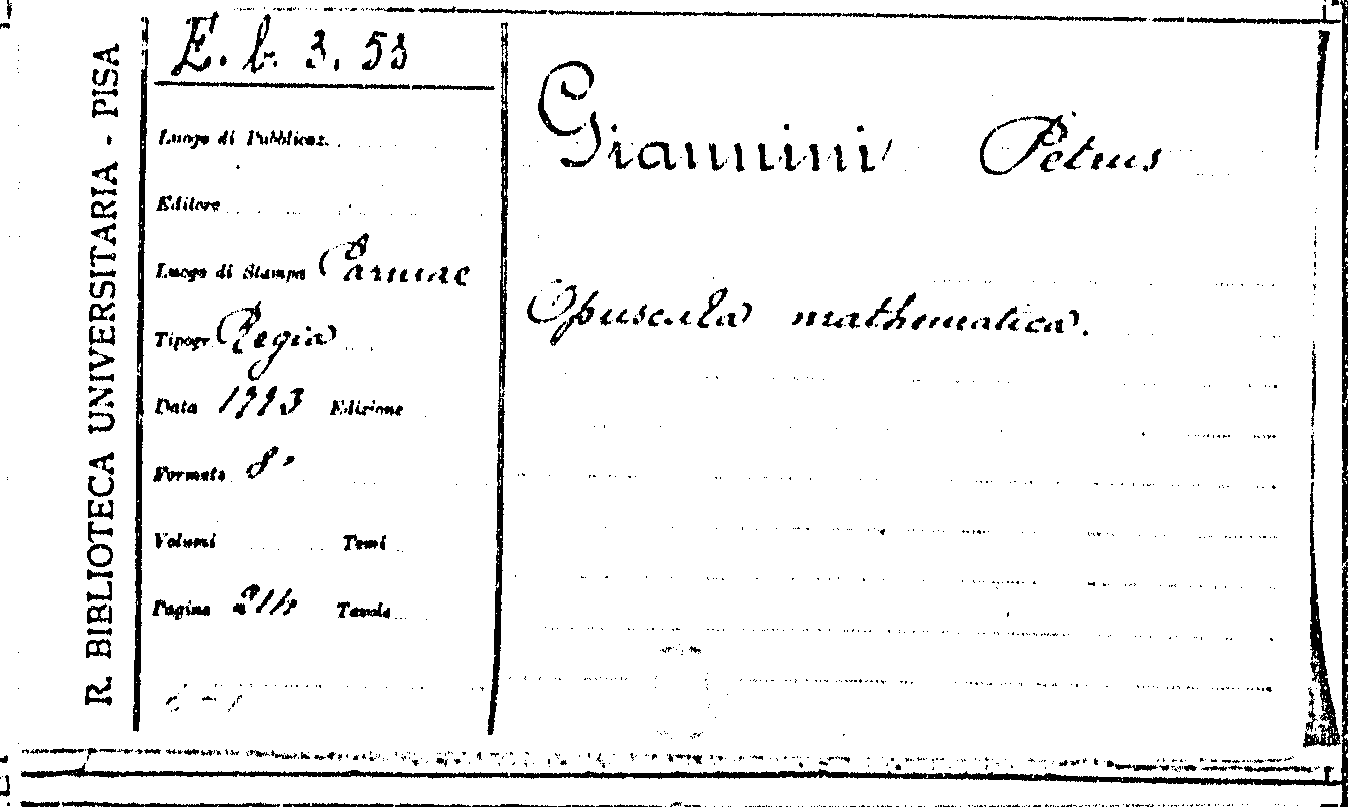 R. BIBLIOTECA UNIVERSITARIA - PISA
E. b. 3. 53
Luogo di Pubblicaz.
Editore
Luogo di Stampa Parmae
Tipogr. Regia
Data 1773 Edizione
Formato 8°
Volumi Tomi
Pagine Tavole
Giannini Petrus
Opuscula mathematica.